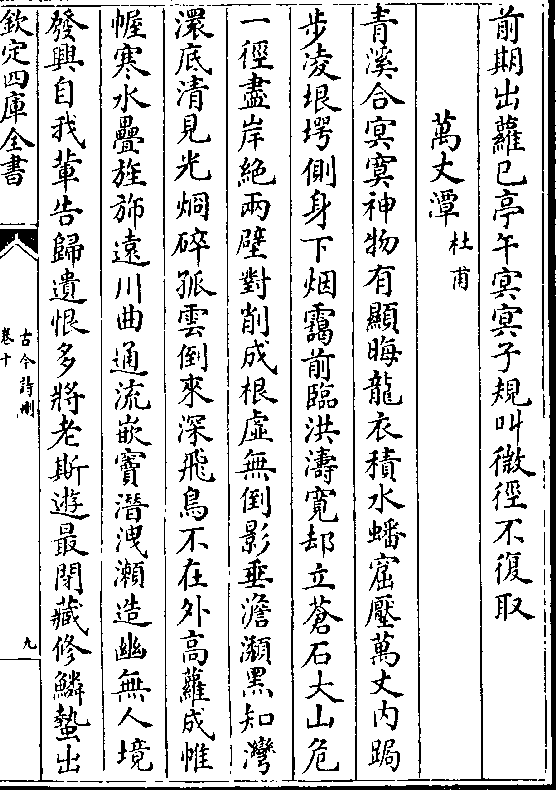 前期出蘿已亭午冥冥子規叫微徑不復取
萬丈潭 杜甫
青溪合冥寞神物有顯晦龍衣積水蟠窟壓萬丈內跼
步凌垠堮側身下烟靄前臨洪濤寬却立蒼石大山危
一徑盡岸絶兩壁對削成根虛無倒影垂澹瀩黑知灣
澴底清見光烱碎孤雲倒來深飛鳥不在外高蘿成帷
幄寒水疊旌斾遠川曲通流嵌竇潛洩瀨造幽無人境
發興自我輩告歸遺恨多將老斯遊最閉藏修鱗蟄出
欽定四庫全書
古今詩刪
卷十
九